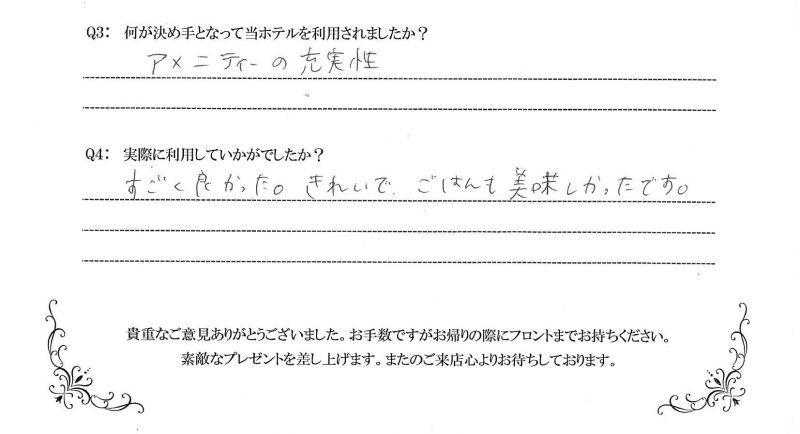 Q3: 何が決め手となって当ホテルを利用されましたか?
アメニティーの充実性
Q4: 実際に利用していかがでしたか?
すごく良かった。きれいで、ごはんも美味しかったです。
貴重なご意見ありがとうございました。お手数ですがお帰りの際にフロントまでお持ちください。
素敵なプレゼントを差し上げます。またのご来店心よりお待ちしております。